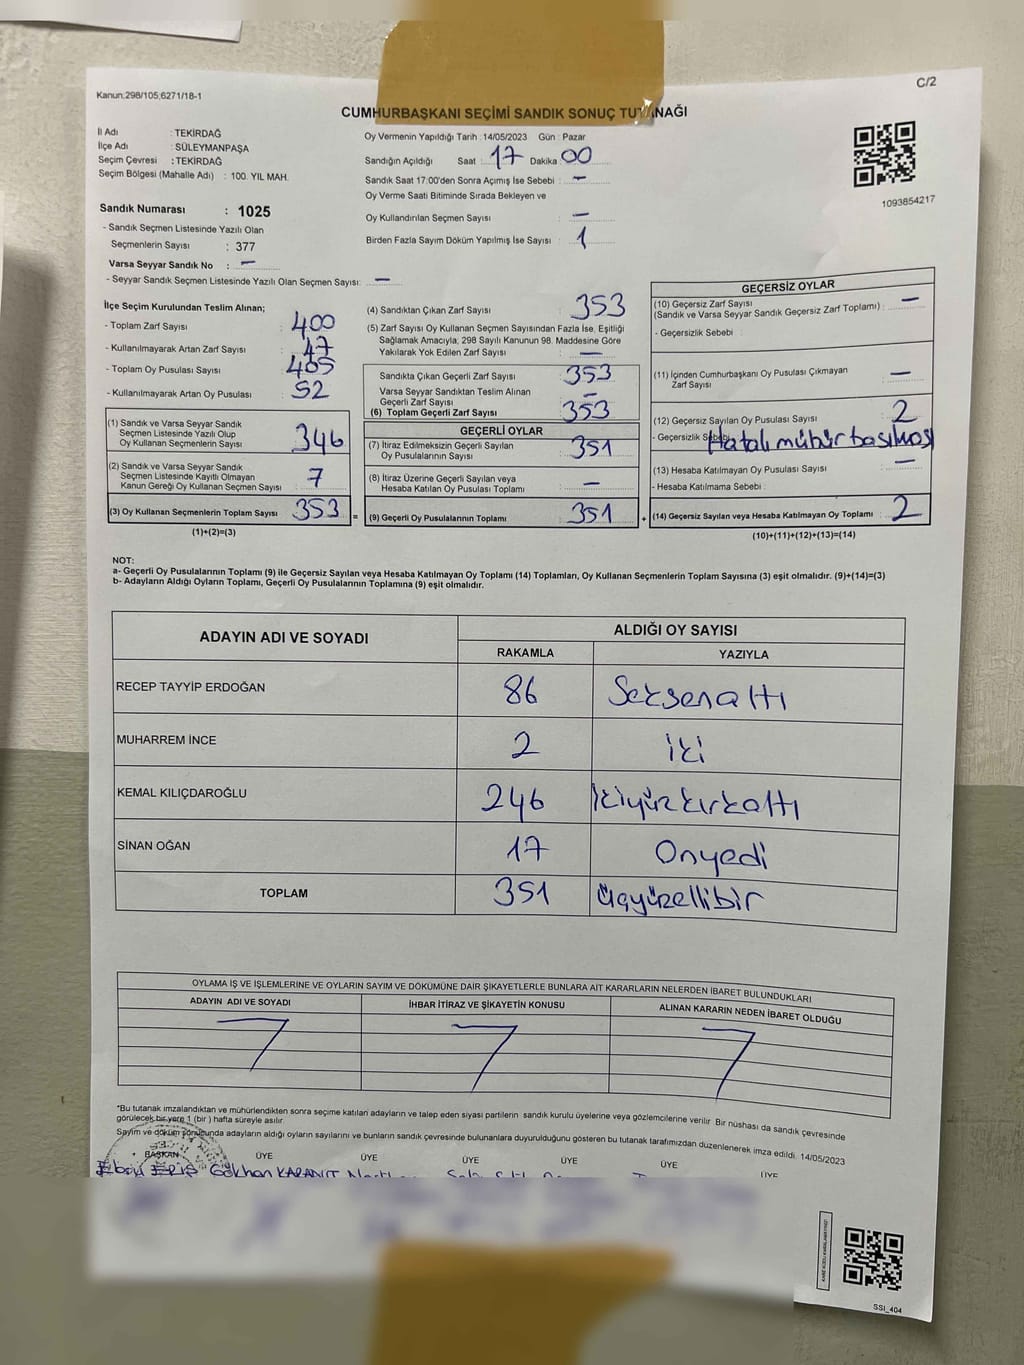 C/2
Kanun:298/105;6271/18-1
CUMHURBAŞKANI SEÇİMİ SANDIK SONUÇ TUTANAĞI
İl Adı : TEKİRDAĞ
İlçe Adı : SÜLEYMANPAŞA
Seçim Çevresi : TEKİRDAĞ
Seçim Bölgesi (Mahalle Adı) : 100. YIL MAH.
Sandık Numarası : 1025
- Sandık Seçmen Listesinde Yazılı Olan
Seçmenlerin Sayısı : 377
Varsa Seyyar Sandık No : –
- Seyyar Sandık Seçmen Listesinde Yazılı Olan Seçmen Sayısı: –
Oy Vermenin Yapıldığı Tarih : 14/05/2023 Gün : Pazar
Sandığın Açıldığı Saat : 17 Dakika : 00
Sandık Saat 17:00'den Sonra Açımış İse Sebebi : –
Oy Verme Saati Bitiminde Sırada Bekleyen ve
Oy Kullandırılan Seçmen Sayısı : –
Birden Fazla Sayım Döküm Yapılmış İse Sayısı : 1
1093854217
İlçe Seçim Kurulundan Teslim Alınan;
- Toplam Zarf Sayısı : 400
- Kullanılmayarak Artan Zarf Sayısı : 47
- Toplam Oy Pusulası Sayısı : 405
- Kullanılmayarak Artan Oy Pusulası : 52
(1) Sandık ve Varsa Seyyar Sandık
Seçmen Listesinde Yazılı Olup
Oy Kullanan Seçmenlerin Sayısı : 346
(2) Sandık ve Varsa Seyyar Sandık
Seçmen Listesinde Kayıtlı Olmayan
Kanun Gereği Oy Kullanan Seçmen Sayısı : 7
(3) Oy Kullanan Seçmenlerin Toplam Sayısı : 353
(1)+(2)=(3)
(4) Sandıktan Çıkan Zarf Sayısı : 353
(5) Zarf Sayısı Oy Kullanan Seçmen Sayısından Fazla İse, Eşitliği
Sağlamak Amacıyla; 298 Sayılı Kanunun 98. Maddesine Göre
Yakılarak Yok Edilen Zarf Sayısı : –
Sandıkta Çıkan Geçerli Zarf Sayısı : 353
Varsa Seyyar Sandıktan Teslim Alınan
Geçerli Zarf Sayısı : –
(6) Toplam Geçerli Zarf Sayısı : 353
GEÇERLİ OYLAR
(7) İtiraz Edilmeksizin Geçerli Sayılan
Oy Pusulalarının Sayısı : 351
(8) İtiraz Üzerine Geçerli Sayılan veya
Hesaba Katılan Oy Pusulası Toplamı : –
(9) Geçerli Oy Pusulalarının Toplamı : 351
GEÇERSİZ OYLAR
(10) Geçersiz Zarf Sayısı
(Sandık ve Varsa Seyyar Sandık Geçersiz Zarf Toplamı) : –
- Geçersizlik Sebebi :
(11) İçinden Cumhurbaşkanı Oy Pusulası Çıkmayan
Zarf Sayısı : –
(12) Geçersiz Sayılan Oy Pusulası Sayısı : 2
- Geçersizlik Sebebi : Hatalı mühür basılması
(13) Hesaba Katılmayan Oy Pusulası Sayısı : –
- Hesaba Katılmama Sebebi :
(14) Geçersiz Sayılan veya Hesaba Katılmayan Oy Toplamı : 2
(10)+(11)+(12)+(13)=(14)
NOT:
a- Geçerli Oy Pusulalarının Toplamı (9) ile Geçersiz Sayılan veya Hesaba Katılmayan Oy Toplamı (14) Toplamları, Oy Kullanan Seçmenlerin Toplam Sayısına (3) eşit olmalıdır. (9)+(14)=(3)
b- Adayların Aldığı Oyların Toplamı, Geçerli Oy Pusulalarının Toplamına (9) eşit olmalıdır.
ADAYIN ADI VE SOYADI ALDIĞI OY SAYISI
RAKAMLA YAZIYLA
RECEP TAYYİP ERDOĞAN 86 Seksenaltı
MUHARREM İNCE 2 iki
KEMAL KILIÇDAROĞLU 246 ikiyüzkırkaltı
SİNAN OĞAN 17 Onyedi
TOPLAM 351 üçyüzellibir
OYLAMA İŞ VE İŞLEMLERİNE VE OYLARIN SAYIM VE DÖKÜMÜNE DAİR ŞİKAYETLERLE BUNLARA AİT KARARLARIN NELERDEN İBARET BULUNDUKLARI
ADAYIN ADI VE SOYADI İHBAR İTİRAZ VE ŞİKAYETİN KONUSU ALINAN KARARIN NEDEN İBARET OLDUĞU
*Bu tutanak imzalandıktan ve mühürlendikten sonra seçime katılan adayların ve talep eden siyasi partilerin sandık kurulu üyelerine veya gözlemcilerine verilir. Bir nüshası da sandık çevresinde
görülecek bir yere 1 (bir) hafta süreyle asılır.
Sayım ve döküm sonucunda adayların aldığı oyların sayılarını ve bunların sandık çevresinde bulunanlara duyurulduğunu gösteren bu tutanak tarafımızdan düzenlenerek imza edildi. 14/05/2023
BAŞKAN ÜYE ÜYE ÜYE ÜYE ÜYE ÜYE
Gökhan
SSI_404